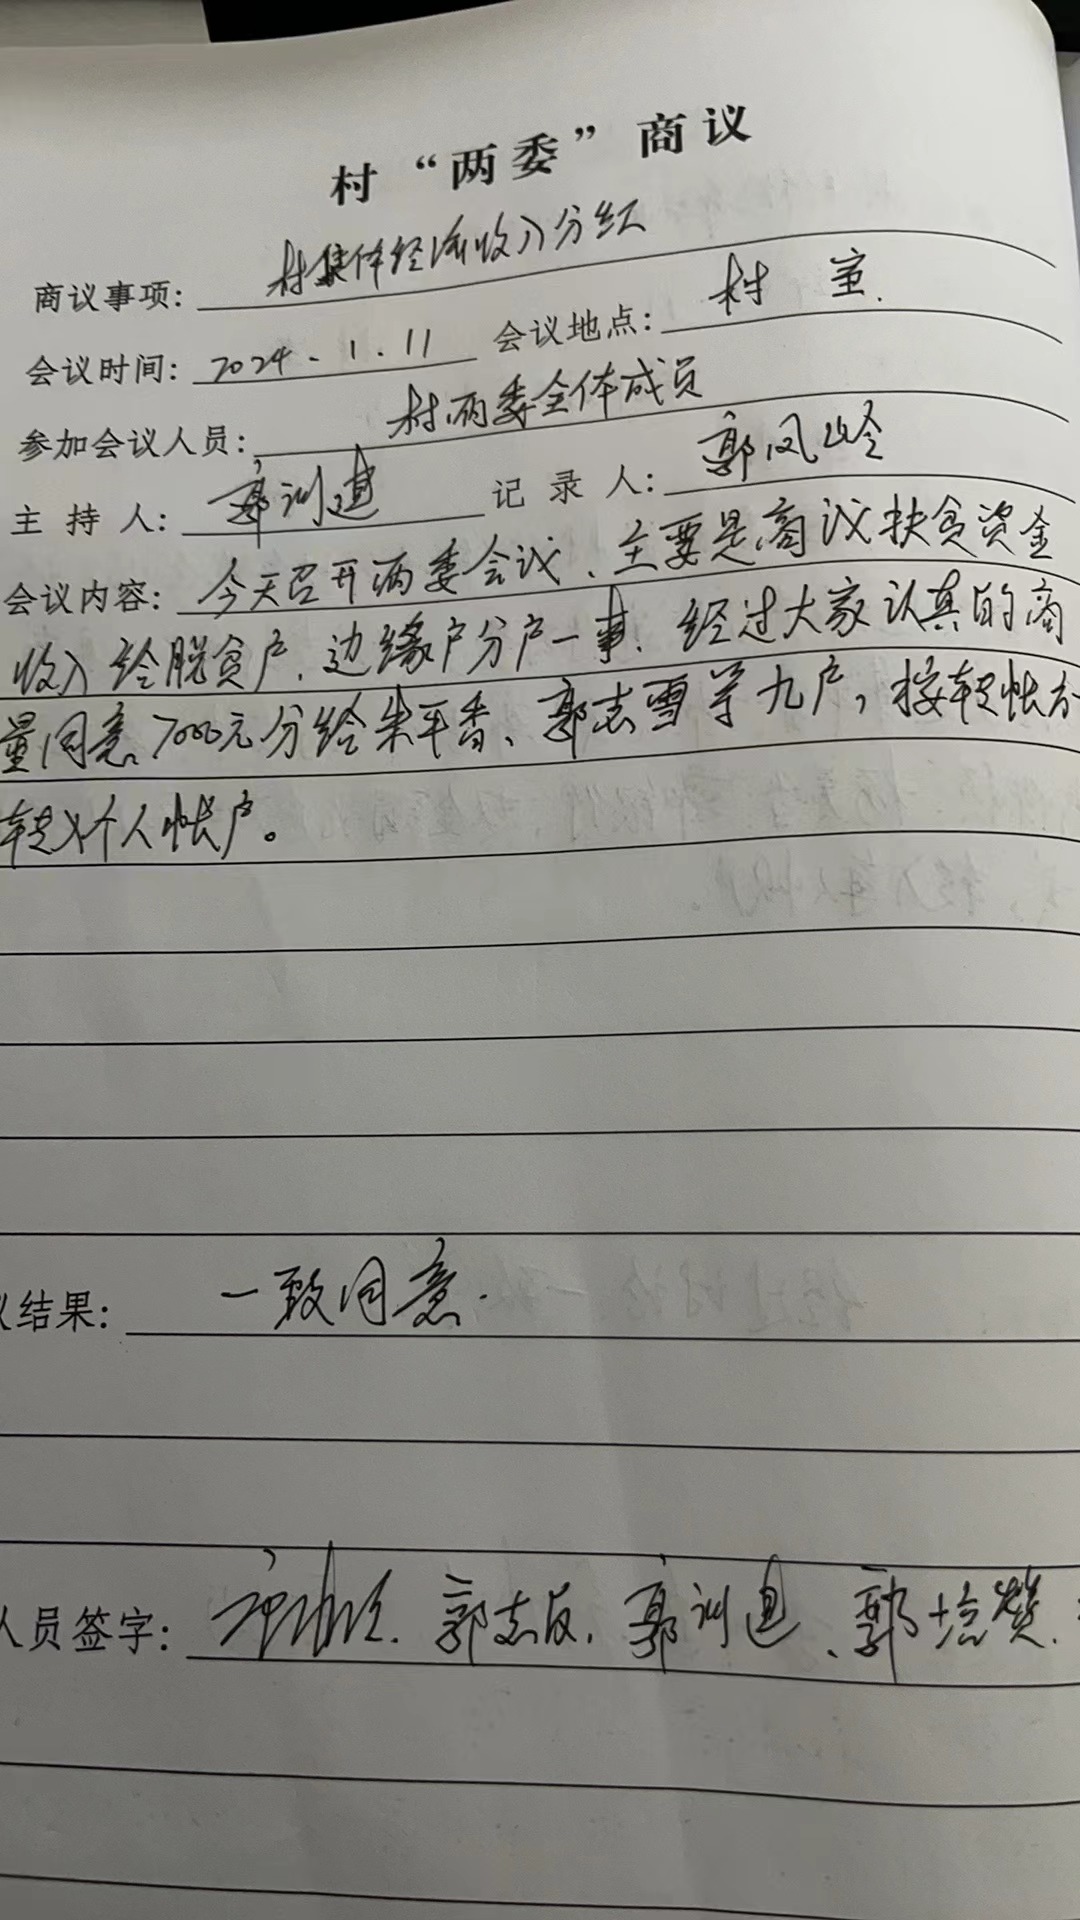 村“两委”商议
商议事项: 村集体经济收入分红
会议时间: 2024.1.11 会议地点: 村室.
参加会议人员: 村两委全体成员
主持人: 郭训建 记录人: 郭凤岭
会议内容: 今天召开两委会议、主要是商议扶贫资金
收入给脱贫户、边缘户分户一事. 经过大家认真的商
量同意7000元分给朱平香、郭志雪等九户,按转帐分
转入个人帐户。
议结果: 一致同意.
人员签字: 郭志成. 郭训建、郭培赞.